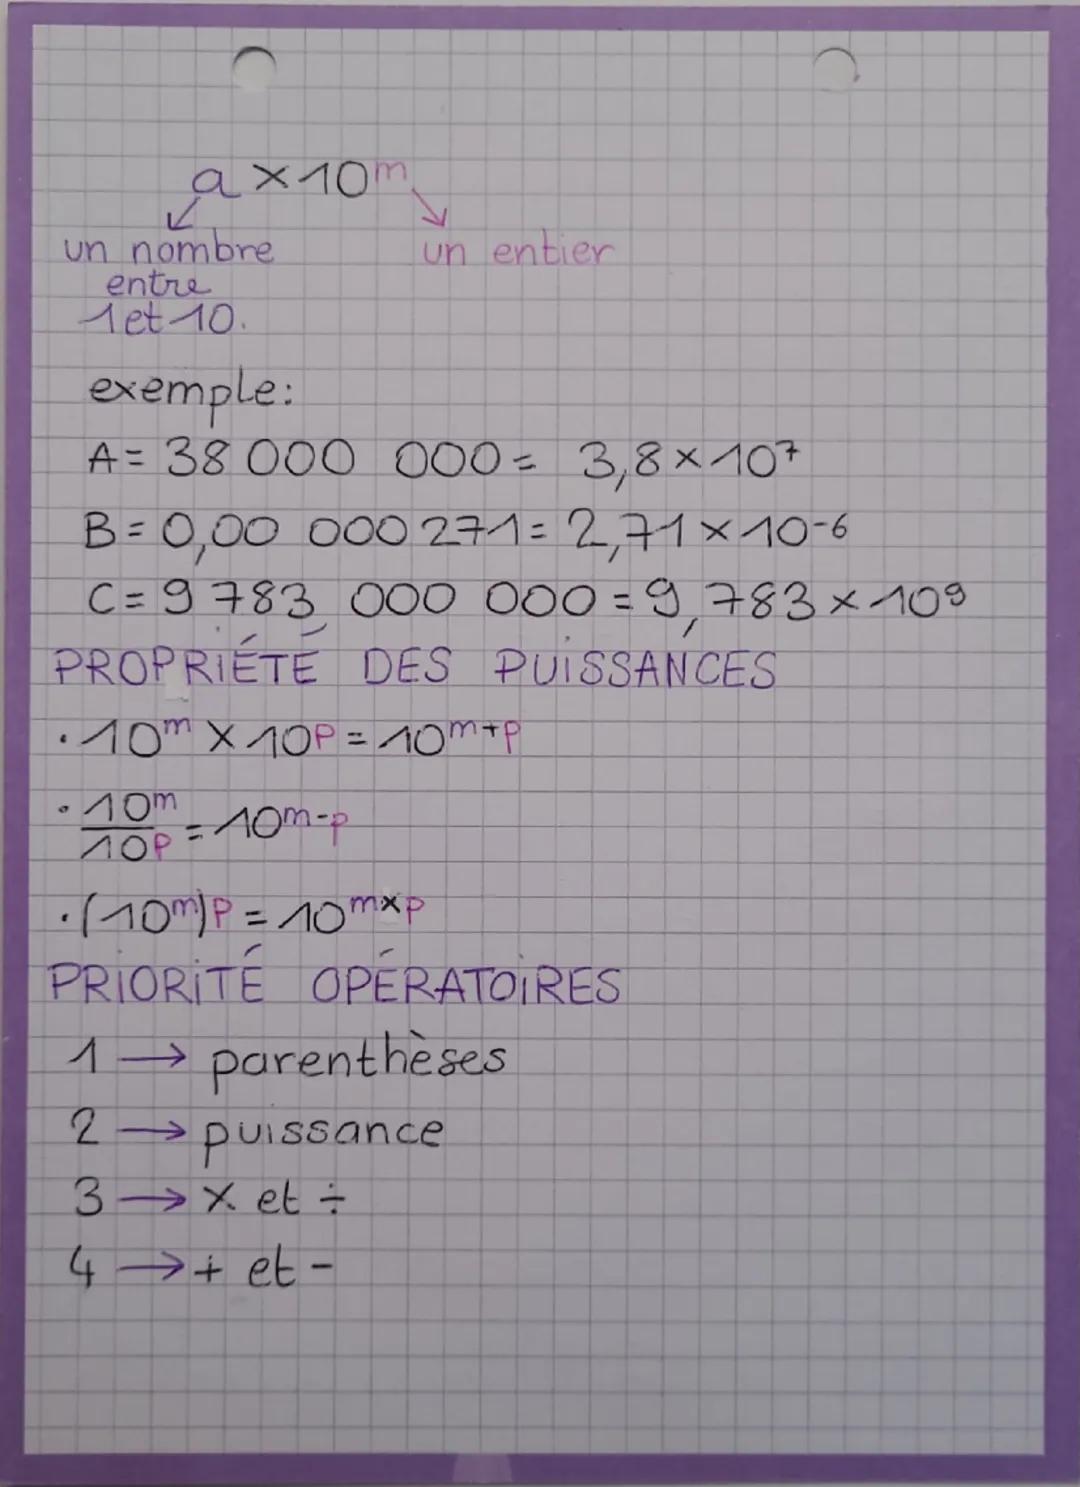 a × 10ᵐ
un nombre un entier
entre
1 et 10.
exemple:
A = 38 000 000 = 3,8 × 10⁷
B = 0,00 000 271 = 2,71 × 10⁻⁶
C = 9 783 000 000 = 9,783 × 10⁹
PROPRIÉTÉ DES PUISSANCES
· 10ᵐ × 10ᵖ = 10ᵐ⁺ᵖ
· 10ᵐ/10ᵖ = 10ᵐ⁻ᵖ
· (10ᵐ)ᵖ = 10ᵐˣᵖ
PRIORITÉ OPÉRATOIRES
1 → parenthèses
2 → puissance
3 → × et ÷
4 → + et -